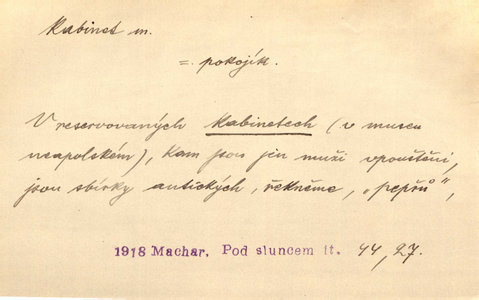 Kabinet m.
= pokojík.
V reservovaných kabinetech (v museu
neapolském), kam jsou jen muži vpouštěni,
jsou sbírky antických, řekněme, „pepřů“,
1918 Machar. Pod sluncem it. 44, 27.